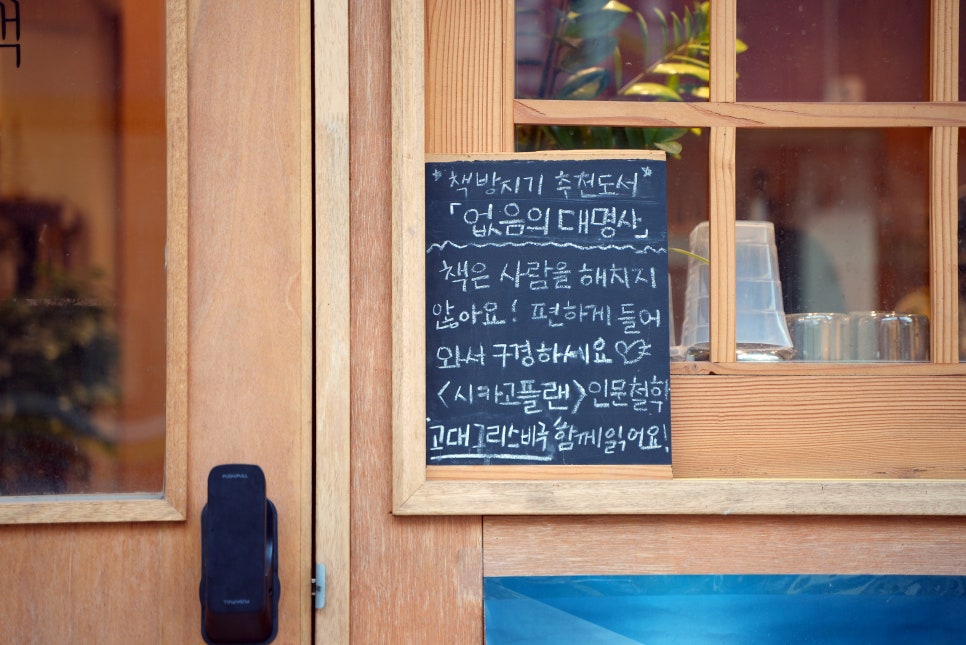 책
*책방지기 추천도서*
「없음의 대명사」
책은 사람을 해치지
않아요! 편하게 들어
와서 구경하세요♡
〈시카고플랜〉인문철학
고대그리스비극 함께읽어요!
PUSH/PULL